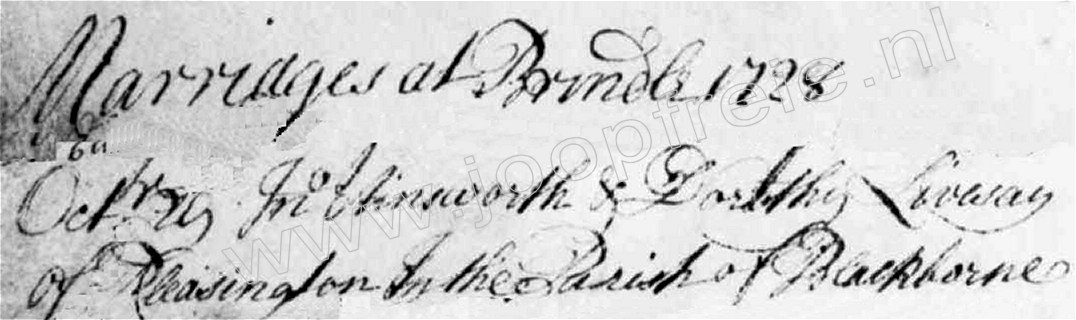 Marridges at Brindle 1728
Octbr 29 Jno Ainsworth & Dorothy Livesay
of Pleasington In the Parish of Blackborne
www.joopfrele.nl